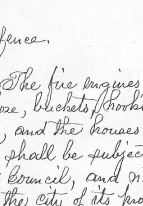 fence.
The fire engines
ose, buckets, hooks
, and the houses
shall be subject
Council, and
the city of its pro